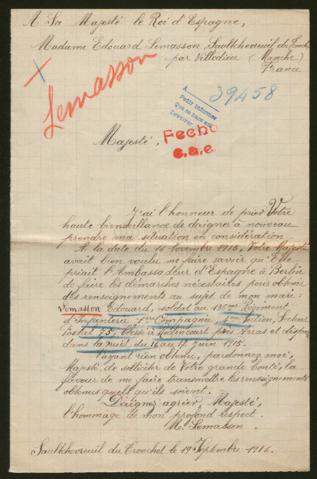 A Sa Majesté le Roi d'Espagne,
Madame Edouard Lemasson, Saultchevreuil du Tronchet
par Villedieu (Manche)
France
Lemasson
39458
Fecho
Majesté,
J'ai l'honneur de prier Votre
haute bienveillance de daigner à nouveau
prendre ma situation en considération
A la date du 10 novembre 1915, Votre Majesté
avait bien voulu me faire savoir qu'Elle
priait l'Ambassadeur d'Espagne à Berlin
de faire les démarches nécessaires pour obtenir
des renseignements au sujet de mon mari:
Lemasson Edouard, soldat au Régiment
d'Infanterie Compagnie Section, Secteur
Postal 25, blessé à près Arras et disparu
dans la nuit du 16 au 17 juin 1915.
N'ayant rien obtenu, pardonnez-moi,
Majesté, de solliciter de Votre grande bonté, la
faveur de me faire transmettre les renseignements
obtenus quels qu'ils soient.
Daignez agréer, Majesté,
l'hommage de mon profond respect.
Me Lemasson
Saultchevreuil du Tronchet le 19 Septembre 1916.